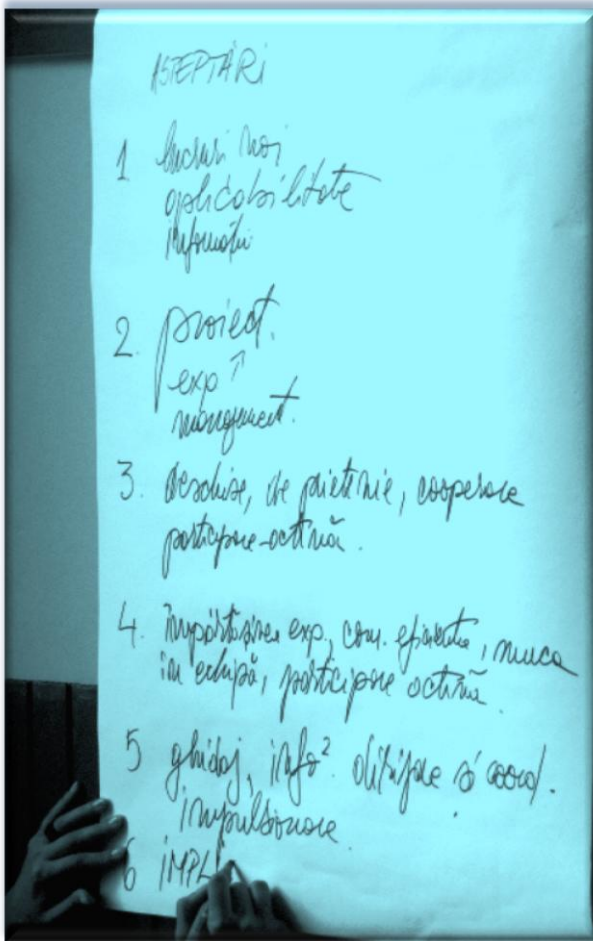 AŞTEPTĂRI
1 lucruri noi
aplicabilitate
informații
2. proiect.
exp ↑
management.
3. deschise, de prietenie, cooperare
participare activă.
4. împărtășirea exp., com. eficientă, munca
în echipă, participare activă.
5 ghidaj, info². dirijare și coord.
impulsionare.
6 IMPL